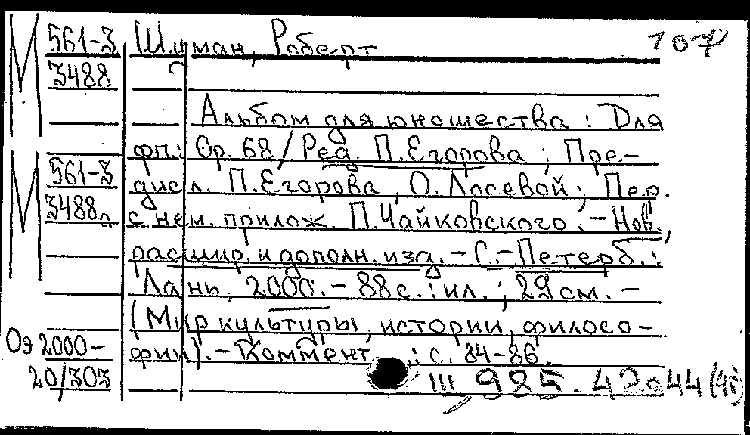 561-3 Шуман, Роберт 107
3488
Альбом для юношества : Для
фп.: Ор. 68 / Ред. П. Егорова ; Пре-
561-3 дисл. П. Егорова, О. Лосевой ; Пер.
3488 с нем. прилож. П. Чайковского. - Нов.,
расшир. и дополн. изд. - С.-Петерб. :
Лань, 2000. - 88 с. : ил. ; 29 см. -
(Мир культуры, истории, филосо-
Оэ 2000- фии). - Коммент. : с. 84-86.
20/303 III 985.